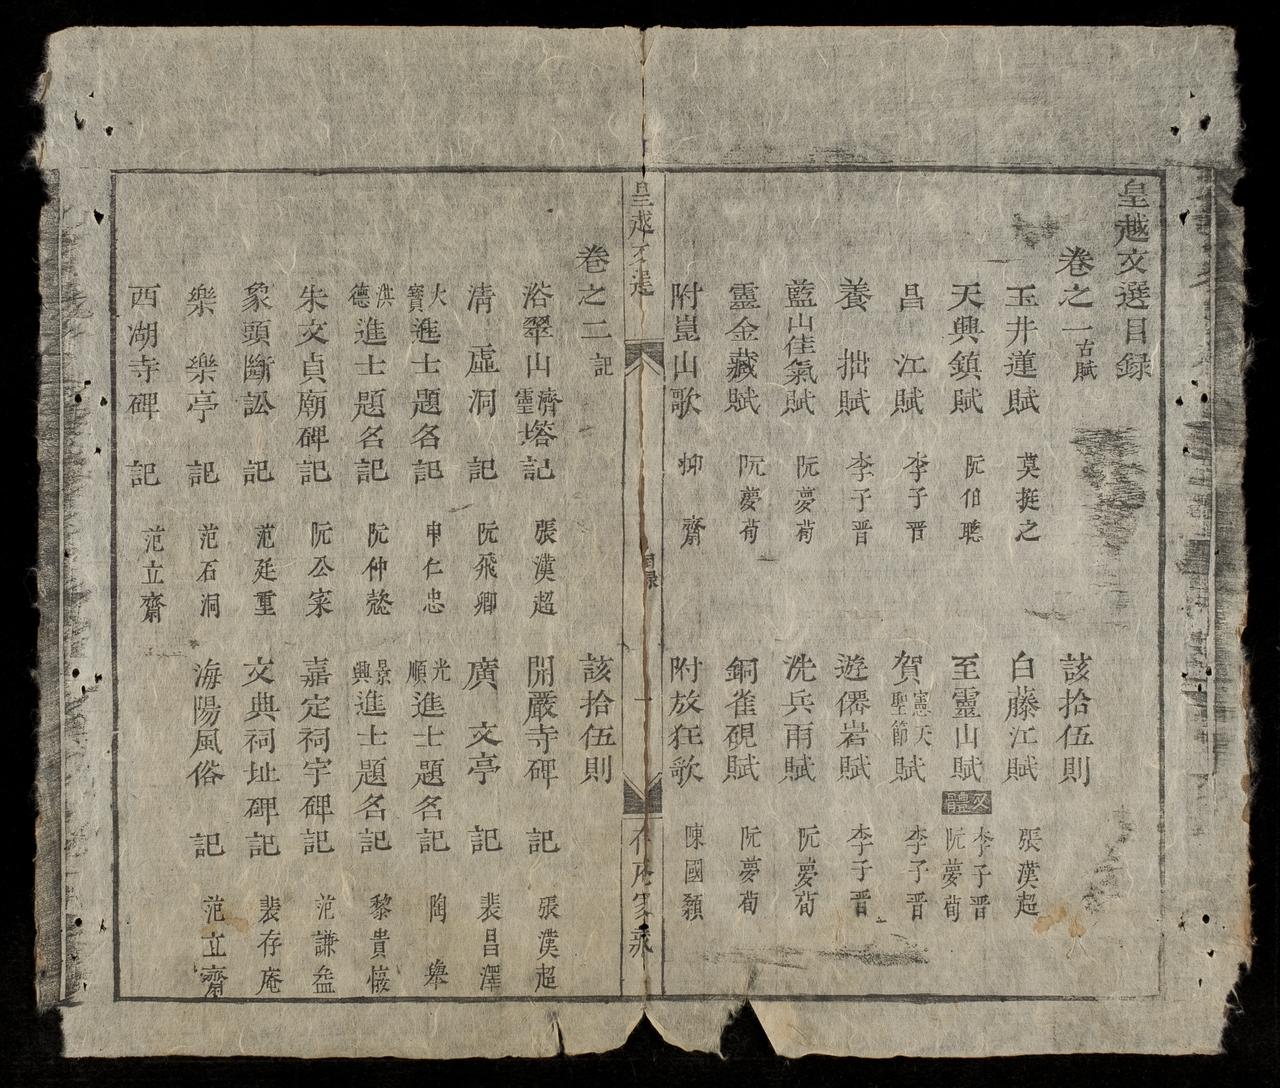 皇越文選目録
卷之一 古賦 該拾伍則
玉井蓮賦 莫挺之 白藤江賦 張漢超
天興鎮賦 阮伯聰 至靈山賦 文體 李子晋 阮夢荀
昌江賦 李子晋 賀憲天聖節賦 李子晋
養拙賦 李子晋 遊僊岩賦 李子晋
藍山佳氣賦 阮夢荀 洗兵雨賦 阮夢荀
靈金藏賦 阮夢荀 銅雀硯賦 阮夢荀
附崑山歌 抑齋 附放狂歌 陳國
皇越文選 目録 一 存庵家藏
卷之二 記 該拾伍則
浴翠山靈濟塔記 張漢超 開嚴寺碑記 張漢超
清虛洞記 阮飛卿 廣文亭記 裴昌澤
大寶進士題名記 申仁忠 光順進士題名記 陶舉
洪德進士題名記 阮仲 景興進士題名記 黎貴
朱文貞廟碑記 阮公寀 嘉定祠宇碑記 范謙益
象頭斷訟記 范廷重 文典祠址碑記 裴存庵
樂樂亭記 范石洞 海陽風俗記 范立齋
西湖寺碑記 范立齋